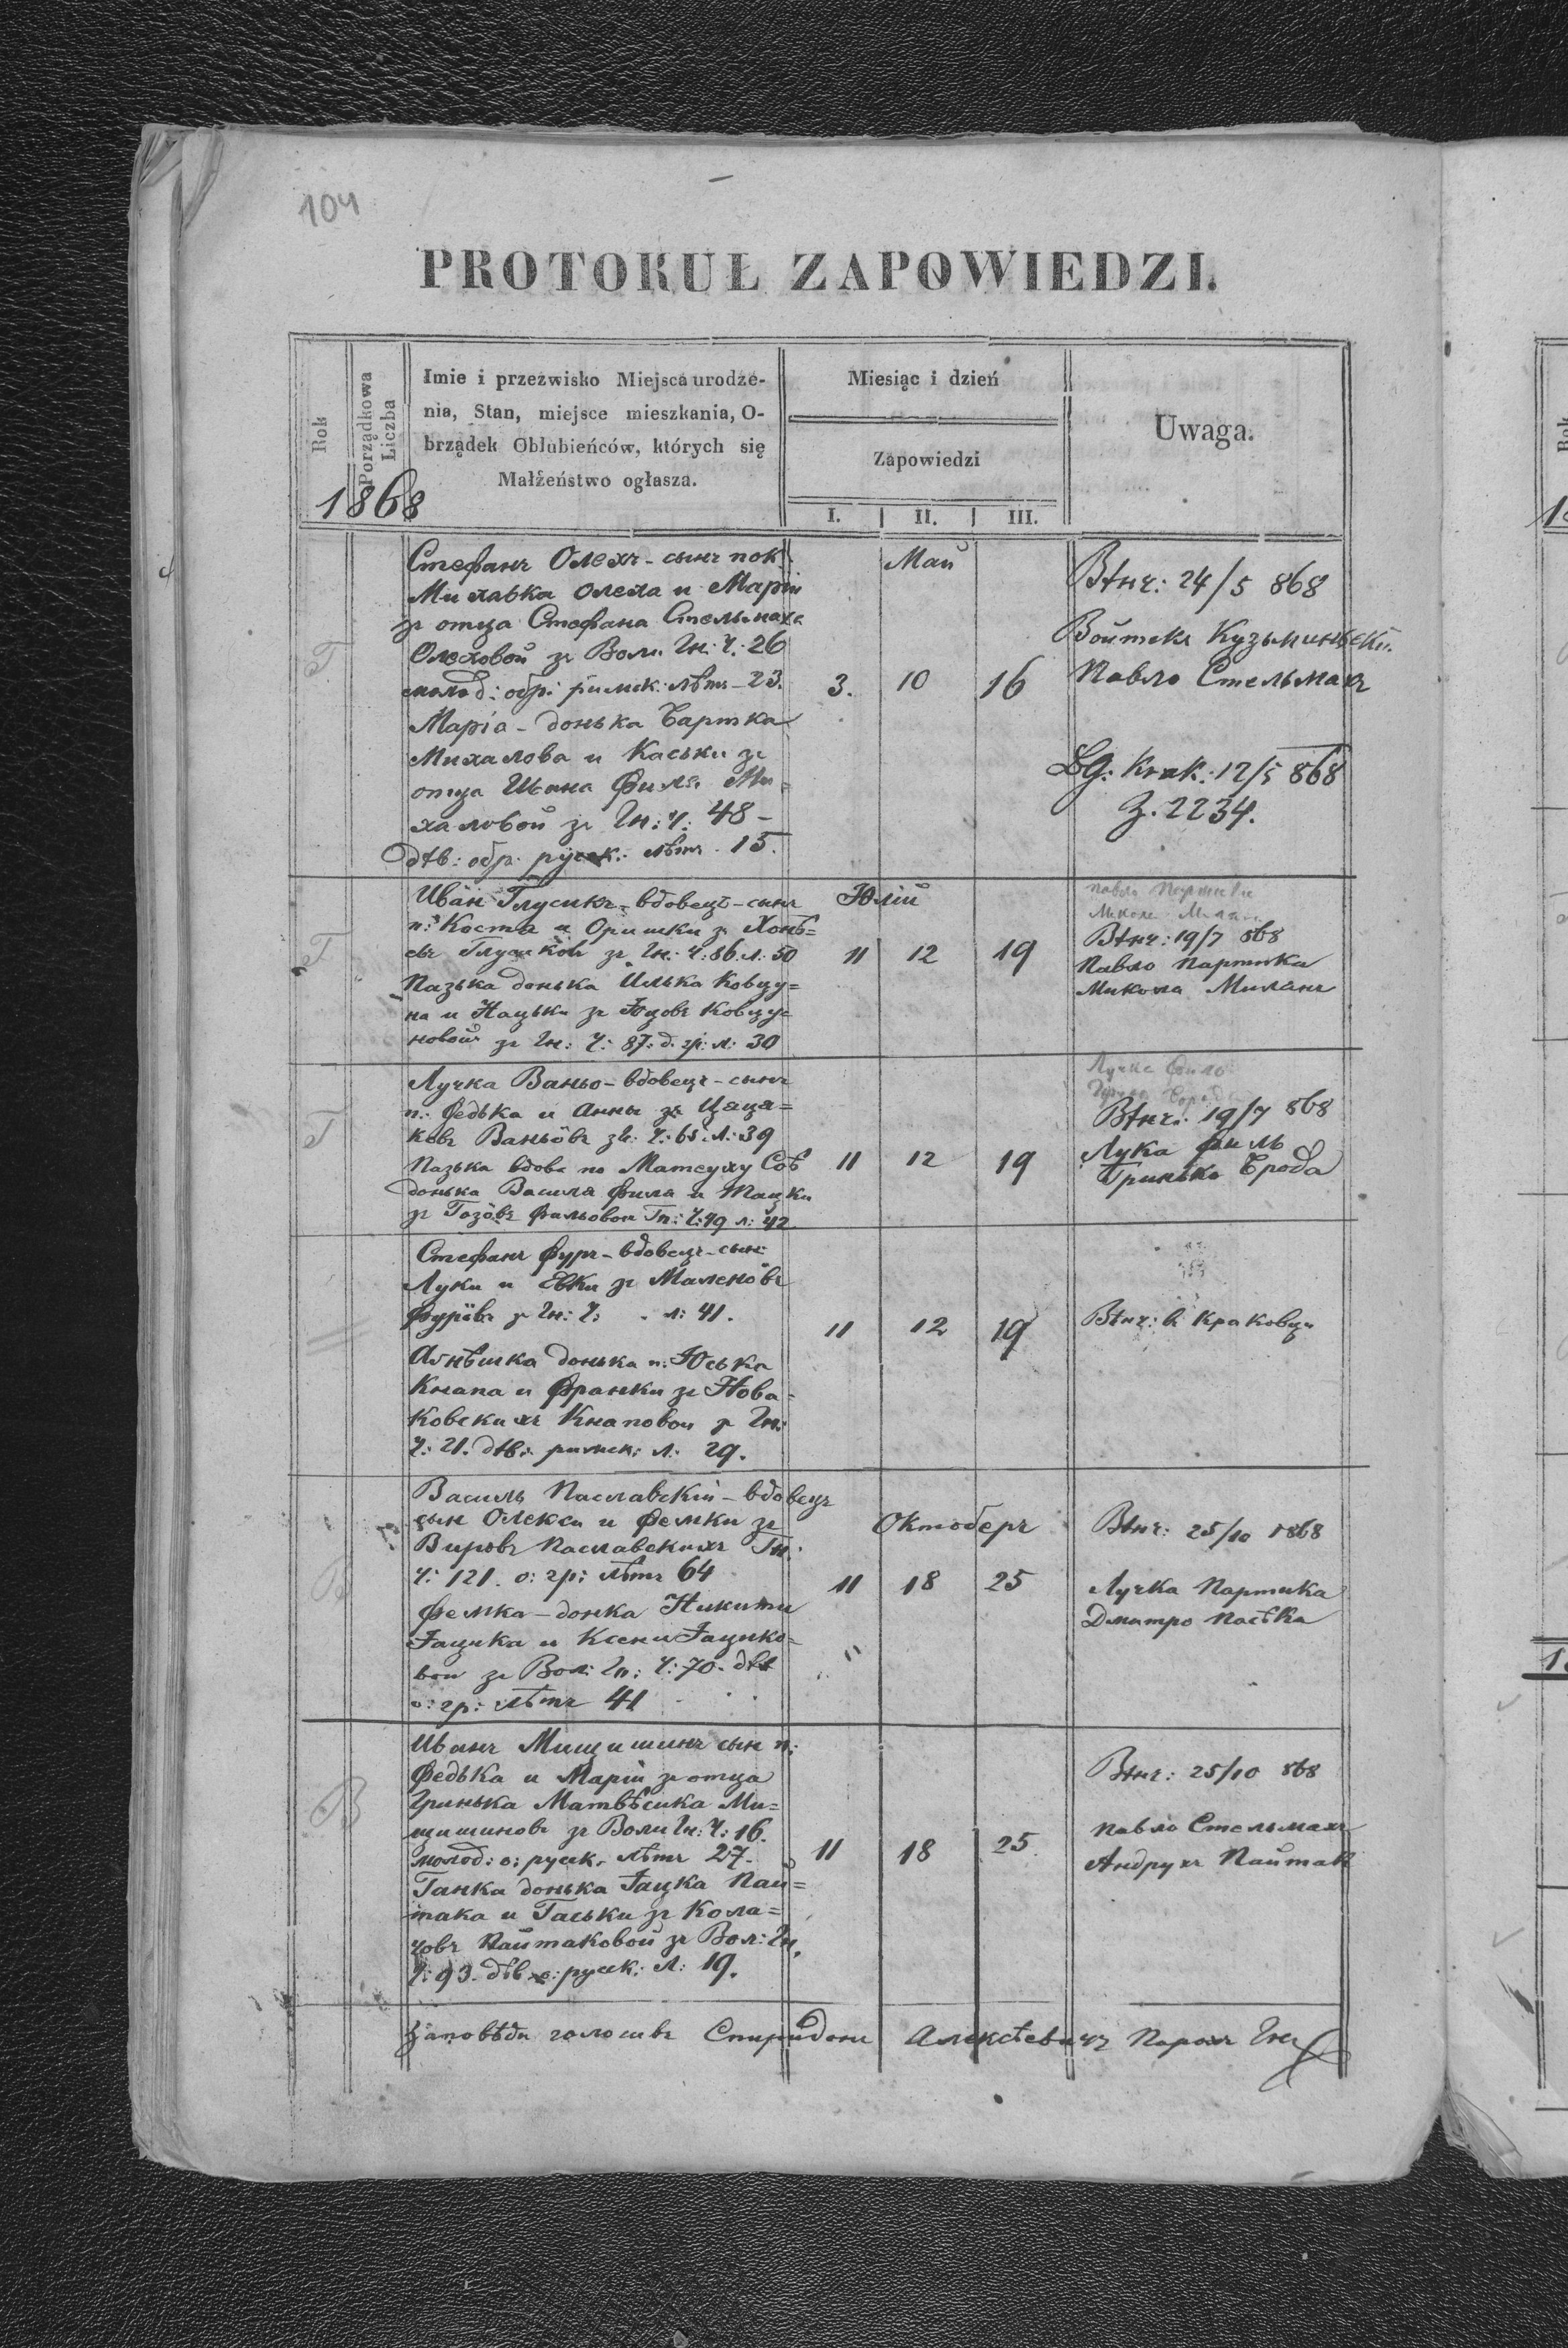 104
PROTOKUŁ ZAPOWIEDZI.
Rok
Porządkowa Liczba
Imie i przezwisko Miejsca urodze-
nia, Stan, miejsce mieszkania, O-
brządek Oblubieńców, których się
Małżeństwo ogłasza.
Miesiąc i dzień
Zapowiedzi
I. II. III.
Uwaga.
1868
Стефанъ Олехъ - сынъ пок.
Михавка Олеха и Маріи
зъ отца Стефана Стельмаха
Олеховой зъ Воли Гн: Ч: 26
молод: обр: римск: лѣтъ - 23.
Марія - донька Бартка
Михалова и Каськи зъ
отца Ивана Филя Ми=
халовой зъ Гн: Ч: 48 -
дѣв: обр: руск: лѣтъ 15.
Май
3. 10 16
Вѣнч: 24/5 868
Войтекъ Кузьминьскій.
Павло Стельмахъ
Bg: Krak: 12/5 868
Z. 2234.
Г
Иван Глусикъ - вдовецъ - сынъ
п: Костя и Оришки зъ Хомѣ=
евъ зъ Гн: Ч: 86 л: 50
Пазька донька Илька Ковцу=
на и Нацьки зъ Яцовъ Ковцу=
новой зъ Гн: Ч: 87. д. гр: л: 30
Юлій
11 12 19
Вѣнч: 19/7 868
Павло Партика
Микола Миланъ
Г
Лучка Ваньо - вдовецъ - сынъ
п: Федька и Анны зъ Цаца=
ковъ Ваньôвъ зъ: Ч: 65 л: 39
Пазька вдова по Матеуху Соб
донька Василя Филя и Тацки
зъ Гозôвъ Фильовои Гн: Ч: 49 л: 42
11 12 19
Вѣнч: 19/7 868
Лука Филь
Гринько Брода
Г
Стефанъ Фуръ - вдовецъ - сын:
Луки и Евки зъ Маленôвъ
Фурôвъ зъ Гн: Ч: л: 41.
Агнѣшка донька п: Юська
Кнапа и Франки зъ Нова=
ковскихъ Кнаповои зъ Гн:
Ч: 21. дѣв: римск: л: 29.
11 12 19
Вѣнч: в Краковци
Василь Паславскій - вдовецъ
сын Олекси и Фемки зъ
Вировъ Паславскихъ Гн:
Ч: 121. о: гр: лѣтъ 64
Фемка - донка Никиты
Яцика и Ксени Яцико=
вои зъ Вол: Гн: Ч: 70. дѣв
о: гр: лѣтъ 41
Октоберъ
11 18 25
Вѣнч: 25/10 1868
Лучка Партика
Дмитро Пасѣка
В
Иванъ Мищишинъ сын п:
Федька и Маріи зъ отца
Гринька Матвѣсика Ми=
щишиновъ зъ Воли Гн: Ч: 16.
молод: о: руск. лѣтъ 27.
Ганка донька Яцка Пай=
така и Гаськи зъ Кола=
човъ Пайтаковой зъ Вол: Гн.
Ч: 93. дѣв о: руск: л: 19.
11 18 25.
Вѣнч: 25/10 868
Павло Стельмахъ
Андрухъ Пайтак
В
Заповѣди голосивъ Спиридонъ Алексѣевичъ Парохъ Гн: